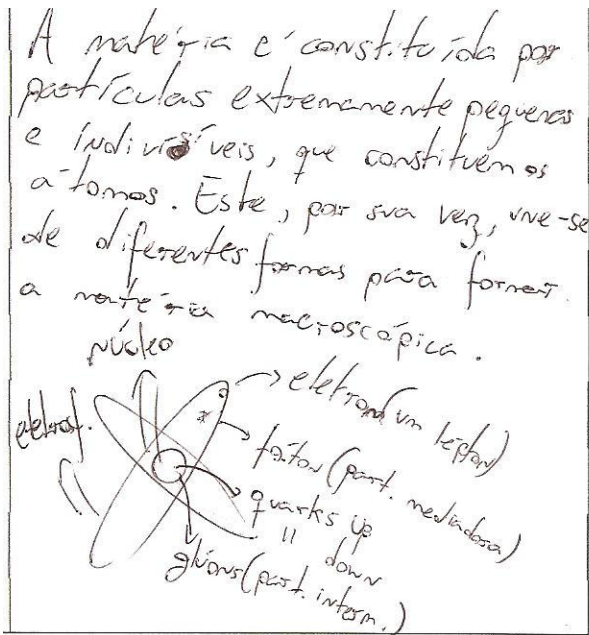 A matéria é constituída por
partículas extremamente pequenas
e indivisíveis, que constituem os
átomos. Este, por sua vez, une-se
de diferentes formas para formar
a matéria macroscópica.
núcleo
eletrosf.
eletron (um lépton)
fóton (part. mediadora)
quarks up
" down
glúons (part. interm.)